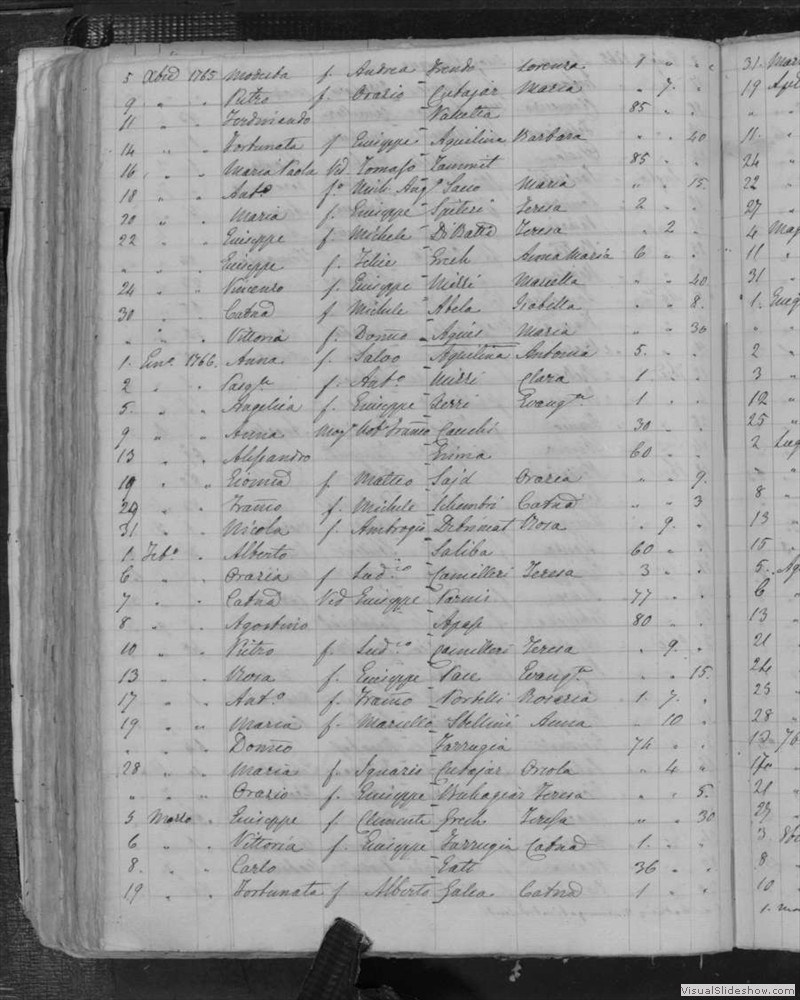 5 Xbrē 1765 Modesta f. Andrea Frendo Lorenza 1 " "
9 " " Pietro f. Orazio Cutajar Maria " 7 "
11 " " Ferdinando Valletta 85 " "
14 " " Fortunata f Giuseppe Aquilina Barbara " " 40
16 " " Maria Paola Vid Tomaso Zammit 85 " "
18 " " Antº fº Mich Angº Maria " " 15
20 " " Maria f. Giuseppe Spiteri Teresa 2 " "
22 " " Giuseppe f Michele Teresa " 2 "
" " " Giuseppe f. Felice Grech Anna Maria 6 " "
24 " " Vincenzo f. Giuseppe Mizzi Marietta " " 40
30 " " Catnā f Michele Abela Isabella " " 8
" " " Vittoria f. Domco Agius Maria " " 30
1. Genº 1766. Anna f Salvo Aquilina Antonia 5 " "
2 " " f. Antº Mizzi Clara 1 " "
5 " " Angelica f. Giuseppe Evangta 1 " "
9 " " Anna Cauchi 30 " "
13 " " Alessandro Grima 60 " "
19 " " f Matteo Said Orazia " " 9
29 " " Franco f. Michele Schembri Catnā " " 3
31 " " Nicola f. Ambrogio Debonnat Rosa " 9 "
1. Febº " Alberto Saliba 60 " "
6 " " Orazia f Ludco Camilleri Teresa 3 " "
7 " " Catnā Vid Giuseppe 77 " "
8 " " Agostino Apap 80 " "
10 " " Pietro f. Ludco Camilleri Teresa " 9 "
13 " " Rosa f. Giuseppe Evangta " " 15
17 " " Antº f. Franco Portelli Rosaria 1 7 "
19 " " Maria f. Marcello Sbellini Anna " 10 "
" " " Domco Farrugia 74 " "
28 " " Maria f Ignazio Cutajar Orsola " 4 "
" " " Orazio f. Giuseppe Buhagiar Teresa " " 5
5 Marzo " Giuseppe f. Clemente Grech Teresa " " 30
6 " " Vittoria f. Giuseppe Farrugia Catnā 1 " "
8 " " Carlo Gatt 36 " "
19 " " Fortunata f Alberto Galea Catnā 1 " "
31. Mar
19 Apr
11.
24
22
27
4 Mag
11
31
1. Giug
2
3
12
25
2 Lug
8
13
15
5. Ag
6
13
21
24
23
28
21
27
3
8
10
VisualSlideshow.com